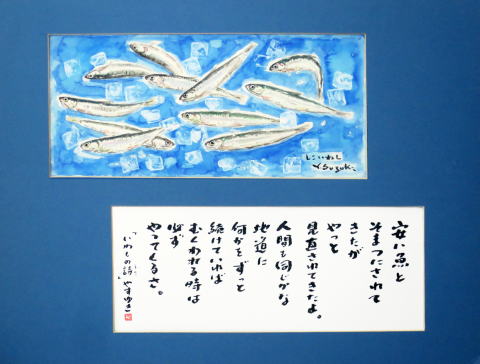 しこいわし
Y.Suzuki
安い魚と
そまつにされて
きたが
やっと
見直されてきたよ。
人間も同じかな
地道に
何かをずっと
続けていれば
むくわれる時は
必ず
やってくるさ。
「いわしの詩」やすゆき